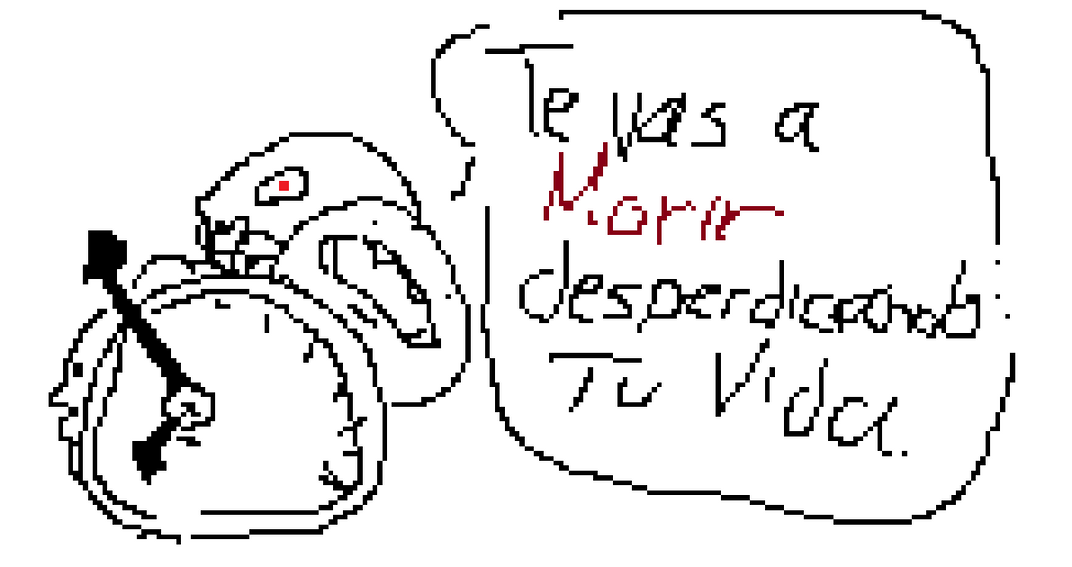 Te vas a
Morir
desperdiciando
Tu Vida.